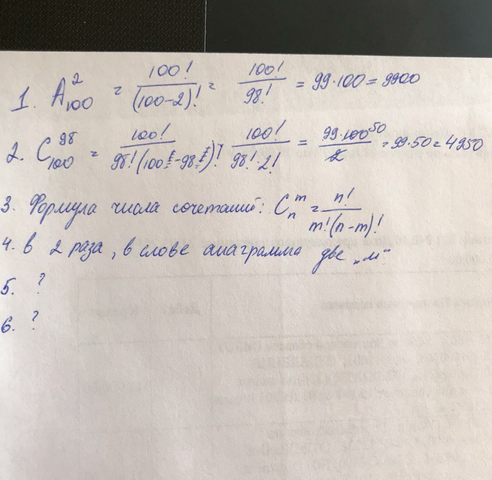 1. A²₁₀₀ = 100!/(100-2)! = 100!/98! = 99·100 = 9900
2. C⁹⁸₁₀₀ = 100!/98!(100-98)! = 100!/98!·2! = 99·100⁵⁰/2 = 99·50 = 4950
3. Формула числа сочетаний: Cₙᵐ = n!/m!(n-m)!
4. в 2 раза, в слове анаграмма две „м"
5. ?
6. ?